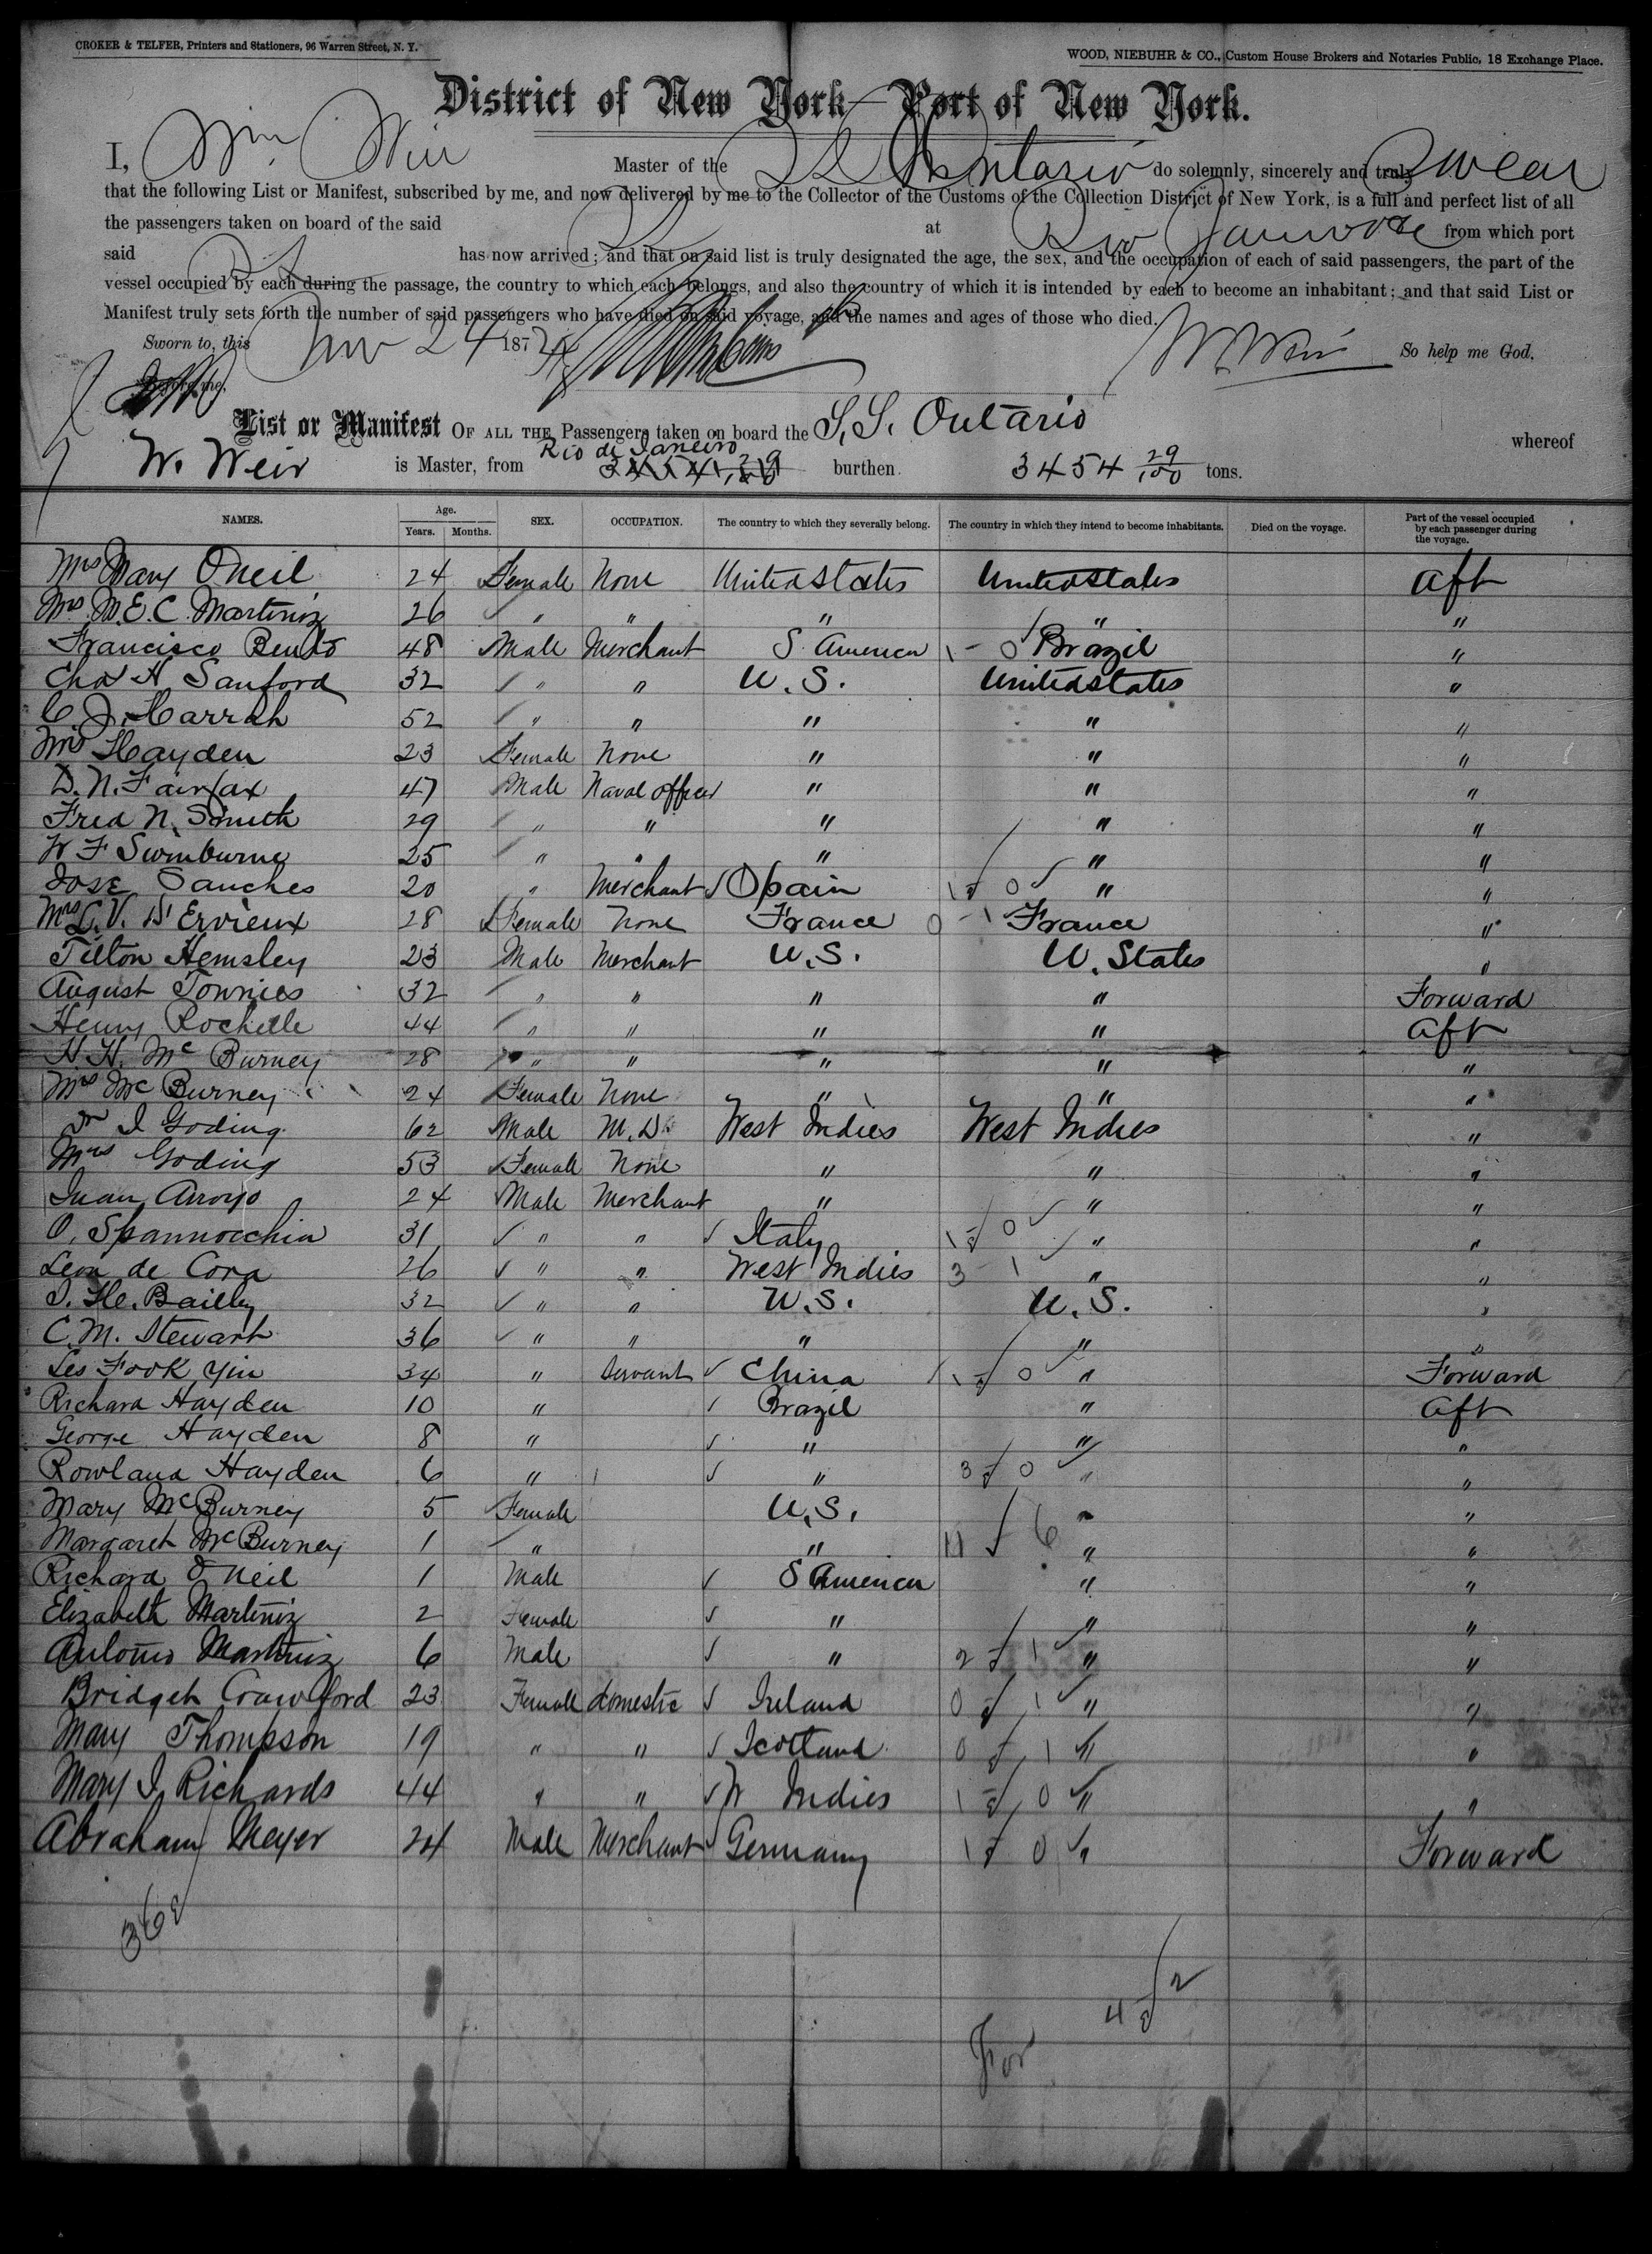 CROKER & TELFER, Printers and Stationers, 96 Warren Street, N. Y.
WOOD, NIEBUHR & CO., Custom House Brokers and Notaries Public, 18 Exchange Place.
District of New York—Port of New York.
I, Wm Weir Master of the SS Ontario do solemnly, sincerely and truly Swear
that the following List or Manifest, subscribed by me, and now delivered by me to the Collector of the Customs of the Collection District of New York, is a full and perfect list of all
the passengers taken on board of the said at Rio Janeiro from which port
said has now arrived; and that on said list is truly designated the age, the sex, and the occupation of each of said passengers, the part of the
vessel occupied by each during the passage, the country to which each belongs, and also the country of which it is intended by each to become an inhabitant; and that said List or
Manifest truly sets forth the number of said passengers who have died on said voyage, and the names and ages of those who died.
Sworn to, this Nov 24 187 W. Weir So help me God.
before me,
List or Manifest OF ALL THE Passengers taken on board the S.S. Ontario whereof
W. Weir is Master, from Rio de Janeiro burthen 3454 29/100 tons.
NAMES. Age. Years. Months. SEX. OCCUPATION. The country to which they severally belong. The country in which they intend to become inhabitants. Died on the voyage. Part of the vessel occupied by each passenger during the voyage.
Mrs Mary Oneil 24 Female None United States United States Aft
Mrs. M. E. C. Martiniz 26 " " " " "
Francisco Bento 48 Male Merchant S America Brazil "
Chas H Sanford 32 " " U. S. United States "
C. J. Harrah 52 " " " " "
Mrs Hayden 23 Female None " " "
D. N. Fairfax 47 Male Naval officer " " "
Fred N. Smith 29 " " " " "
W F Swinburne 25 " " " " "
Jose Sanches 20 " Merchant Spain " "
Mrs C. V. D'Ervieux 28 Female None France France "
Tilton Hemsley 23 Male Merchant U. S. U. States "
August Townies 32 " " " " Forward
Henry Rochelle 44 " " " " Aft
H. H. Mc Burney 28 " " " " "
Mrs Mc Burney 24 Female None " " "
Dr I Goding 62 Male M. D. West Indies West Indies "
Mrs Goding 53 Female None " " "
Juan Arroyo 24 Male Merchant " " "
O. Spannocchia 31 " " Italy " "
Leon de Cora 26 " " West Indies " "
J. H. Bailey 32 " " U. S. U. S. "
C. M. Stewart 36 " " " " "
Les Fook Yin 34 " Servant China " Forward
Richard Hayden 10 " Brazil " Aft
George Hayden 8 " " " "
Rowland Hayden 6 " " " "
Mary McBurney 5 Female U. S. " "
Margaret McBurney 1 " " " "
Richard O Neil 1 Male S America " "
Elizabeth Martiniz 2 Female " " "
Antonio Martiniz 6 Male " " "
Bridget Crawford 23 Female domestic Ireland " "
Mary Thompson 19 " " Scotland " "
Mary J. Richards 44 " " W Indies " "
Abraham Meyer 24 Male Merchant Germany " Forward
For